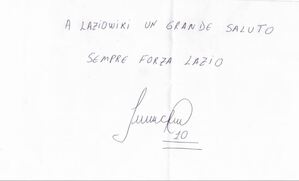 A LAZIOWIKI UN GRANDE SALUTO
SEMPRE FORZA LAZIO
10